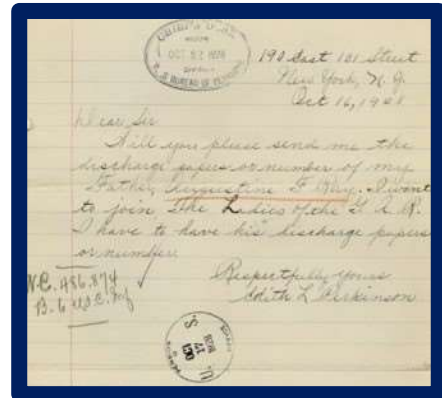 OCT 17 1928
U.S. BUREAU OF PENSIONS
190 East 101 Street
New York, N.Y.
Oct 16, 1928
Dear Sir
Will you please send me the
discharge papers or number of my
Father, Augustine F. Ray. I want
to join, The Ladies of the G.A.R.
I have to have his discharge papers
or number
Respectfully yours
Edith L. Perkinson
W.C. 486.874
OCT
17
1928